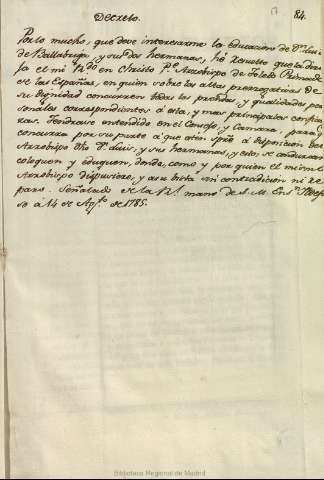 84.
Decreto.
Por lo mucho, que deve interesarme la educacion de Dn. Luis
de Ballabriga, y sus dos hermanas, hé resuelto que la dirija
el mi Rdo. en Christo Pe. Arzobispo de Toledo Primado
de las Españas, en quien sobre las altas prerrogativas de
su dignidad concurren todas las prendas, y qualidades per
sonales correspondientes á esta, y mas principales confian
zas. Tendrase entendido en el Consejo, y Camara, para que
concurra por su parte á que esten á disposicion del
Arzobispo dho Dn. Luis, y sus hermanas, y estos se conduzcan
coloquen y eduquen, donde, como y por quien el mismo
Arzobispo dispusiere, y a su vista sin contradicion ni re
paro. Señalado de la Rl. mano de S. M. En Sn. Ildefon
so á 14 de Agto. de 1785.
Biblioteca Regional de Madrid